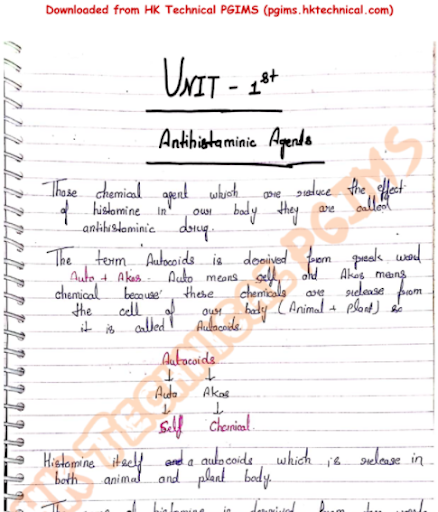 Downloaded from HK Technical PGIMS (pgims.hktechnical.com)
UNIT - 1st
Antihistaminic Agents
Those chemical agent which are reduce the effect
of histamine in our body they are called
antihistaminic drug.
The term Autocoids is derived from greek word
Auto + Akos. Auto means self, and Akos means
chemical because these chemicals are release from
the cell of our body (Animal + plant) so
it is called Autocoids.
Autocoids
↓ ↓
Auto Akos
↓ ↓
Self Chemical.
Histamine itself a autocoids which is release in
both animal and plant body.
HK TECHNICAL PGIMS